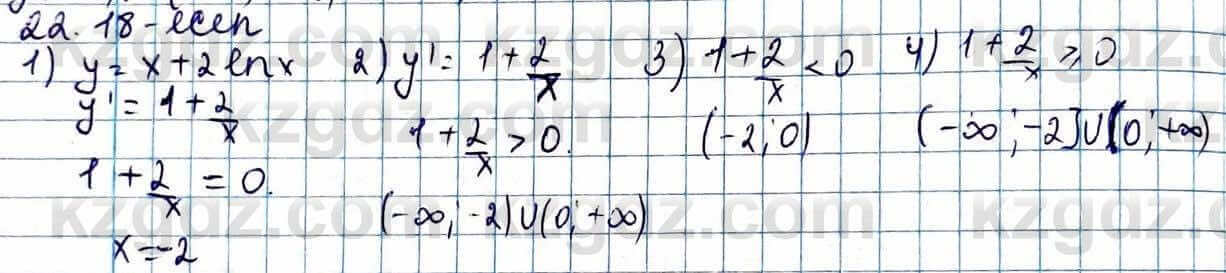 22.18-есеп
1) y = x + 2 ln x
y' = 1 + 2/x
1 + 2/x = 0.
x = -2
2) y' = 1 + 2/x
1 + 2/x > 0.
(-∞; -2) ∪ (0; +∞)
3) 1 + 2/x < 0
(-2; 0)
4) 1 + 2/x ⩾ 0
(-∞; -2] ∪ (0; +∞)
kzgdz.com